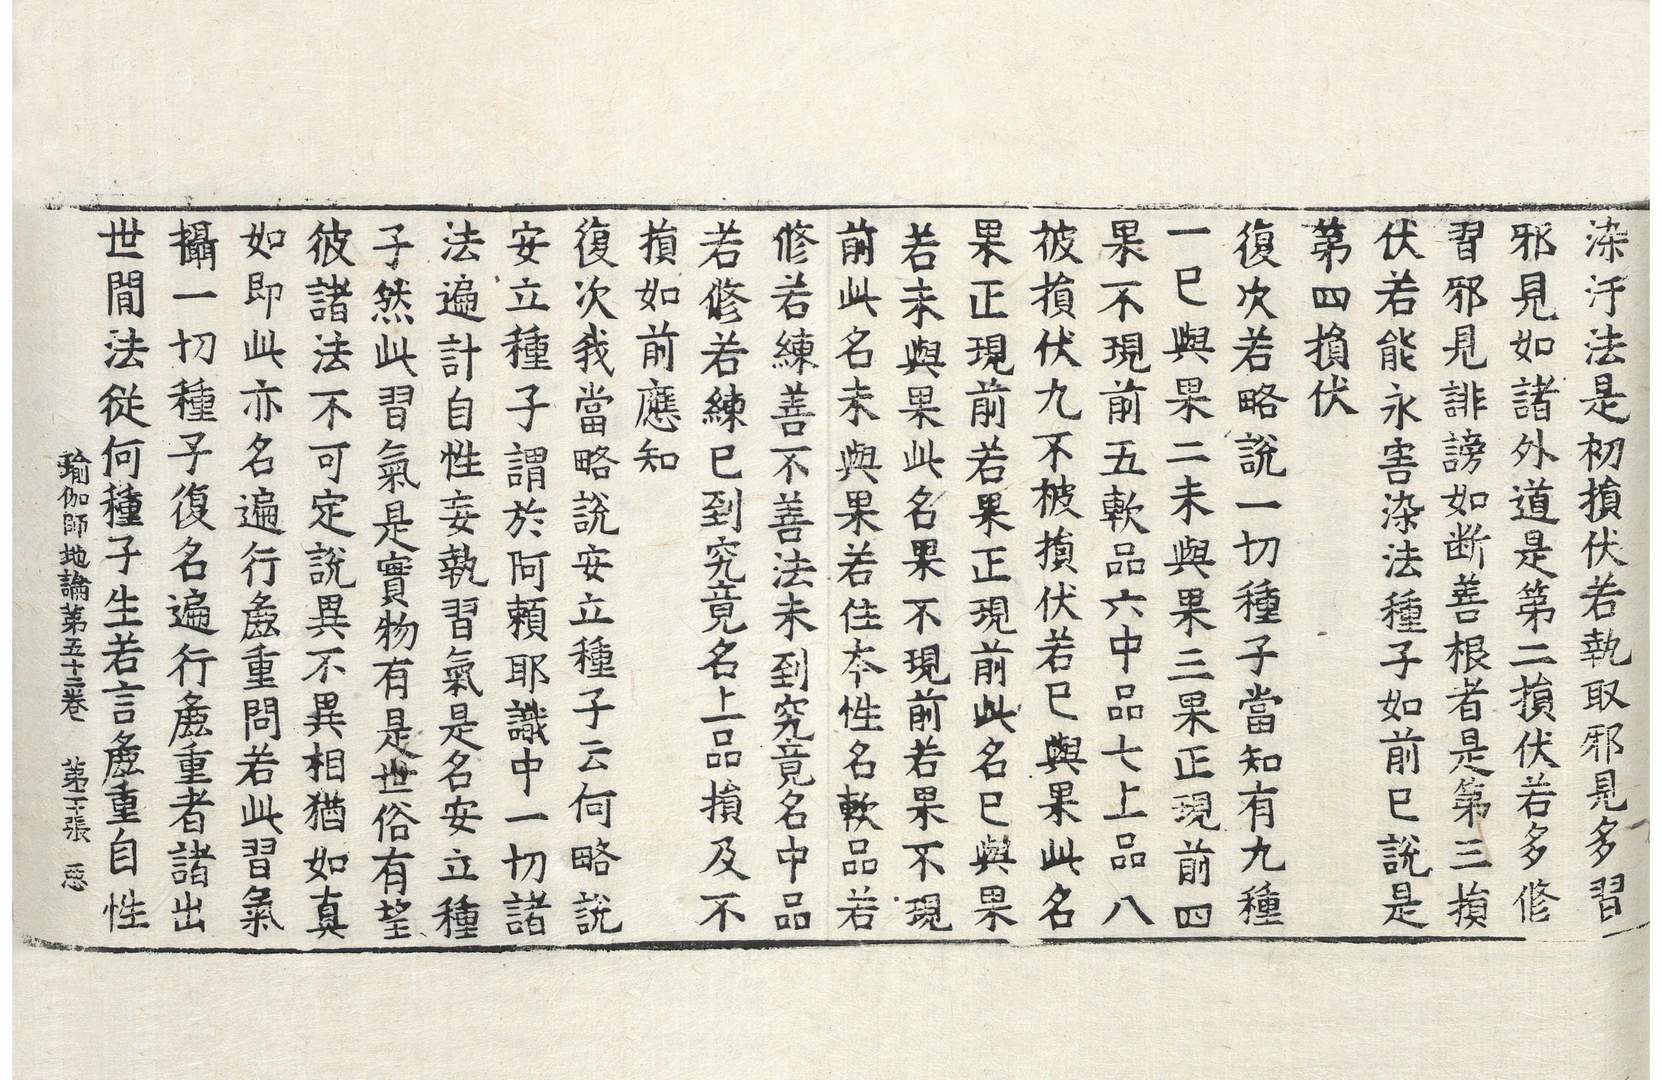 染汙法是初損伏若執取邪見多習
邪見如諸外道是第二損伏若多修
習邪見誹謗如断善根者是第三損
伏若能永害染法種子如前已說是
第四損伏
復次若略說一切種子當知有九種
一已與果二未與果三果正現前四
果不現前五軟品六中品七上品八
被損伏九不被損伏若已與果此名
果正現前若果正現前此名已與果
若未與果此名果不現前若果不現
前此名未與果若住夲性名軟品若
修若練善不善法未到究竟名中品
若修若練已到究竟名上品損及不
損如前應知
復次我當略說安立種子云何略說
安立種子謂於阿賴耶識中一切諸
法遍計自性妄執習氣是名安立種
子然此習氣是實物有是世俗有望
彼諸法不可定說異不異相猶如真
如即此亦名遍行麁重問若此習氣
攝一切種子復名遍行麁重者諸出
世間法從何種子生若言麁重自性
瑜伽師地論第五十二卷 第 張 惡